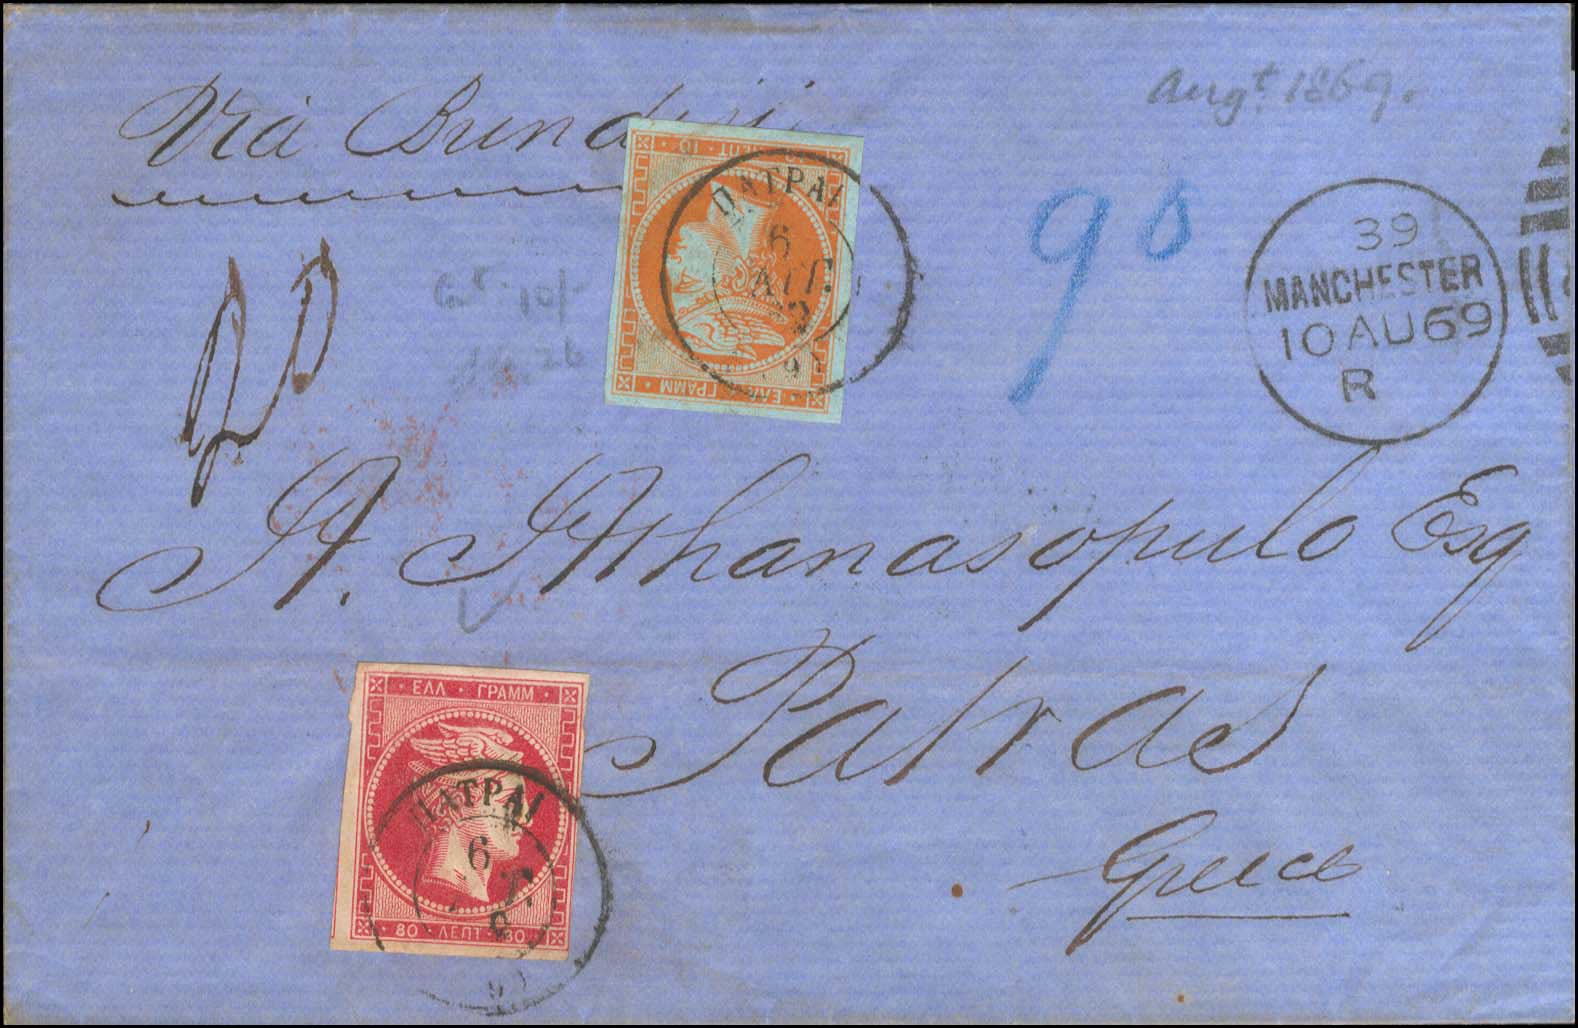 Augt. 1869.
Via Brindisi
10 ΛΕΠΤ
ΕΛΛ ΓΡΑΜΜ
ΠΑΤΡΑΙ
6
ΑΥΓ.
90
39
MANCHESTER
10 AU 69
R
10/-
26
A. Athanasopulo Esq
Patras
Greece
ΕΛΛ · ΓΡΑΜΜ
ΠΑΤΡΑΙ
6
80 · ΛΕΠΤ · 80